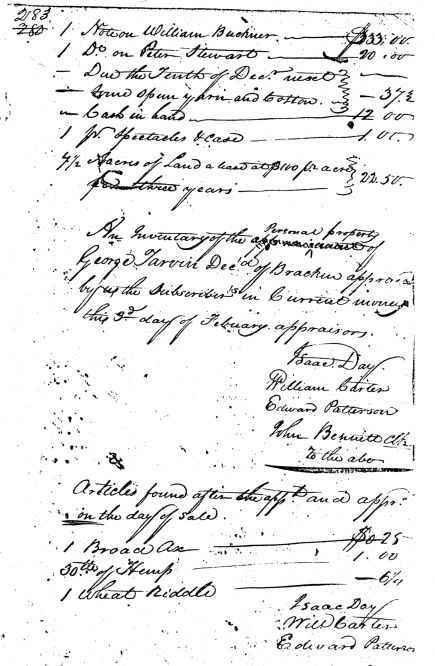 283
280
1 Note on William Buckner. $33.00.
1 Do on Peter Stewart 20.00
— Due the Tenth of Decr next —
— Some spun yarn and Cotton — 37½
— Cash in hand 12 00
1 pr. Spectacles & case 1.00
7½ Acres of Land a lease at $100 pr acre
for three years 22.50.
Personal property
An Inventory of the of
George Tarvin Dec'd of Bracken apprais
by us the Subscribers in Current money
this 3d day of February appraisors.
Isaac Day.
William Carter
Edward Patterson
John Bennett Clk
to the abov
Articles found after the appt and appr.
in the day of Sale.
1 Broad Ax $0 25
30 lb of Hemp 1.00
1 Wheat Riddle — 6¼
Isaac Day
Will Carter
Edward Patterson